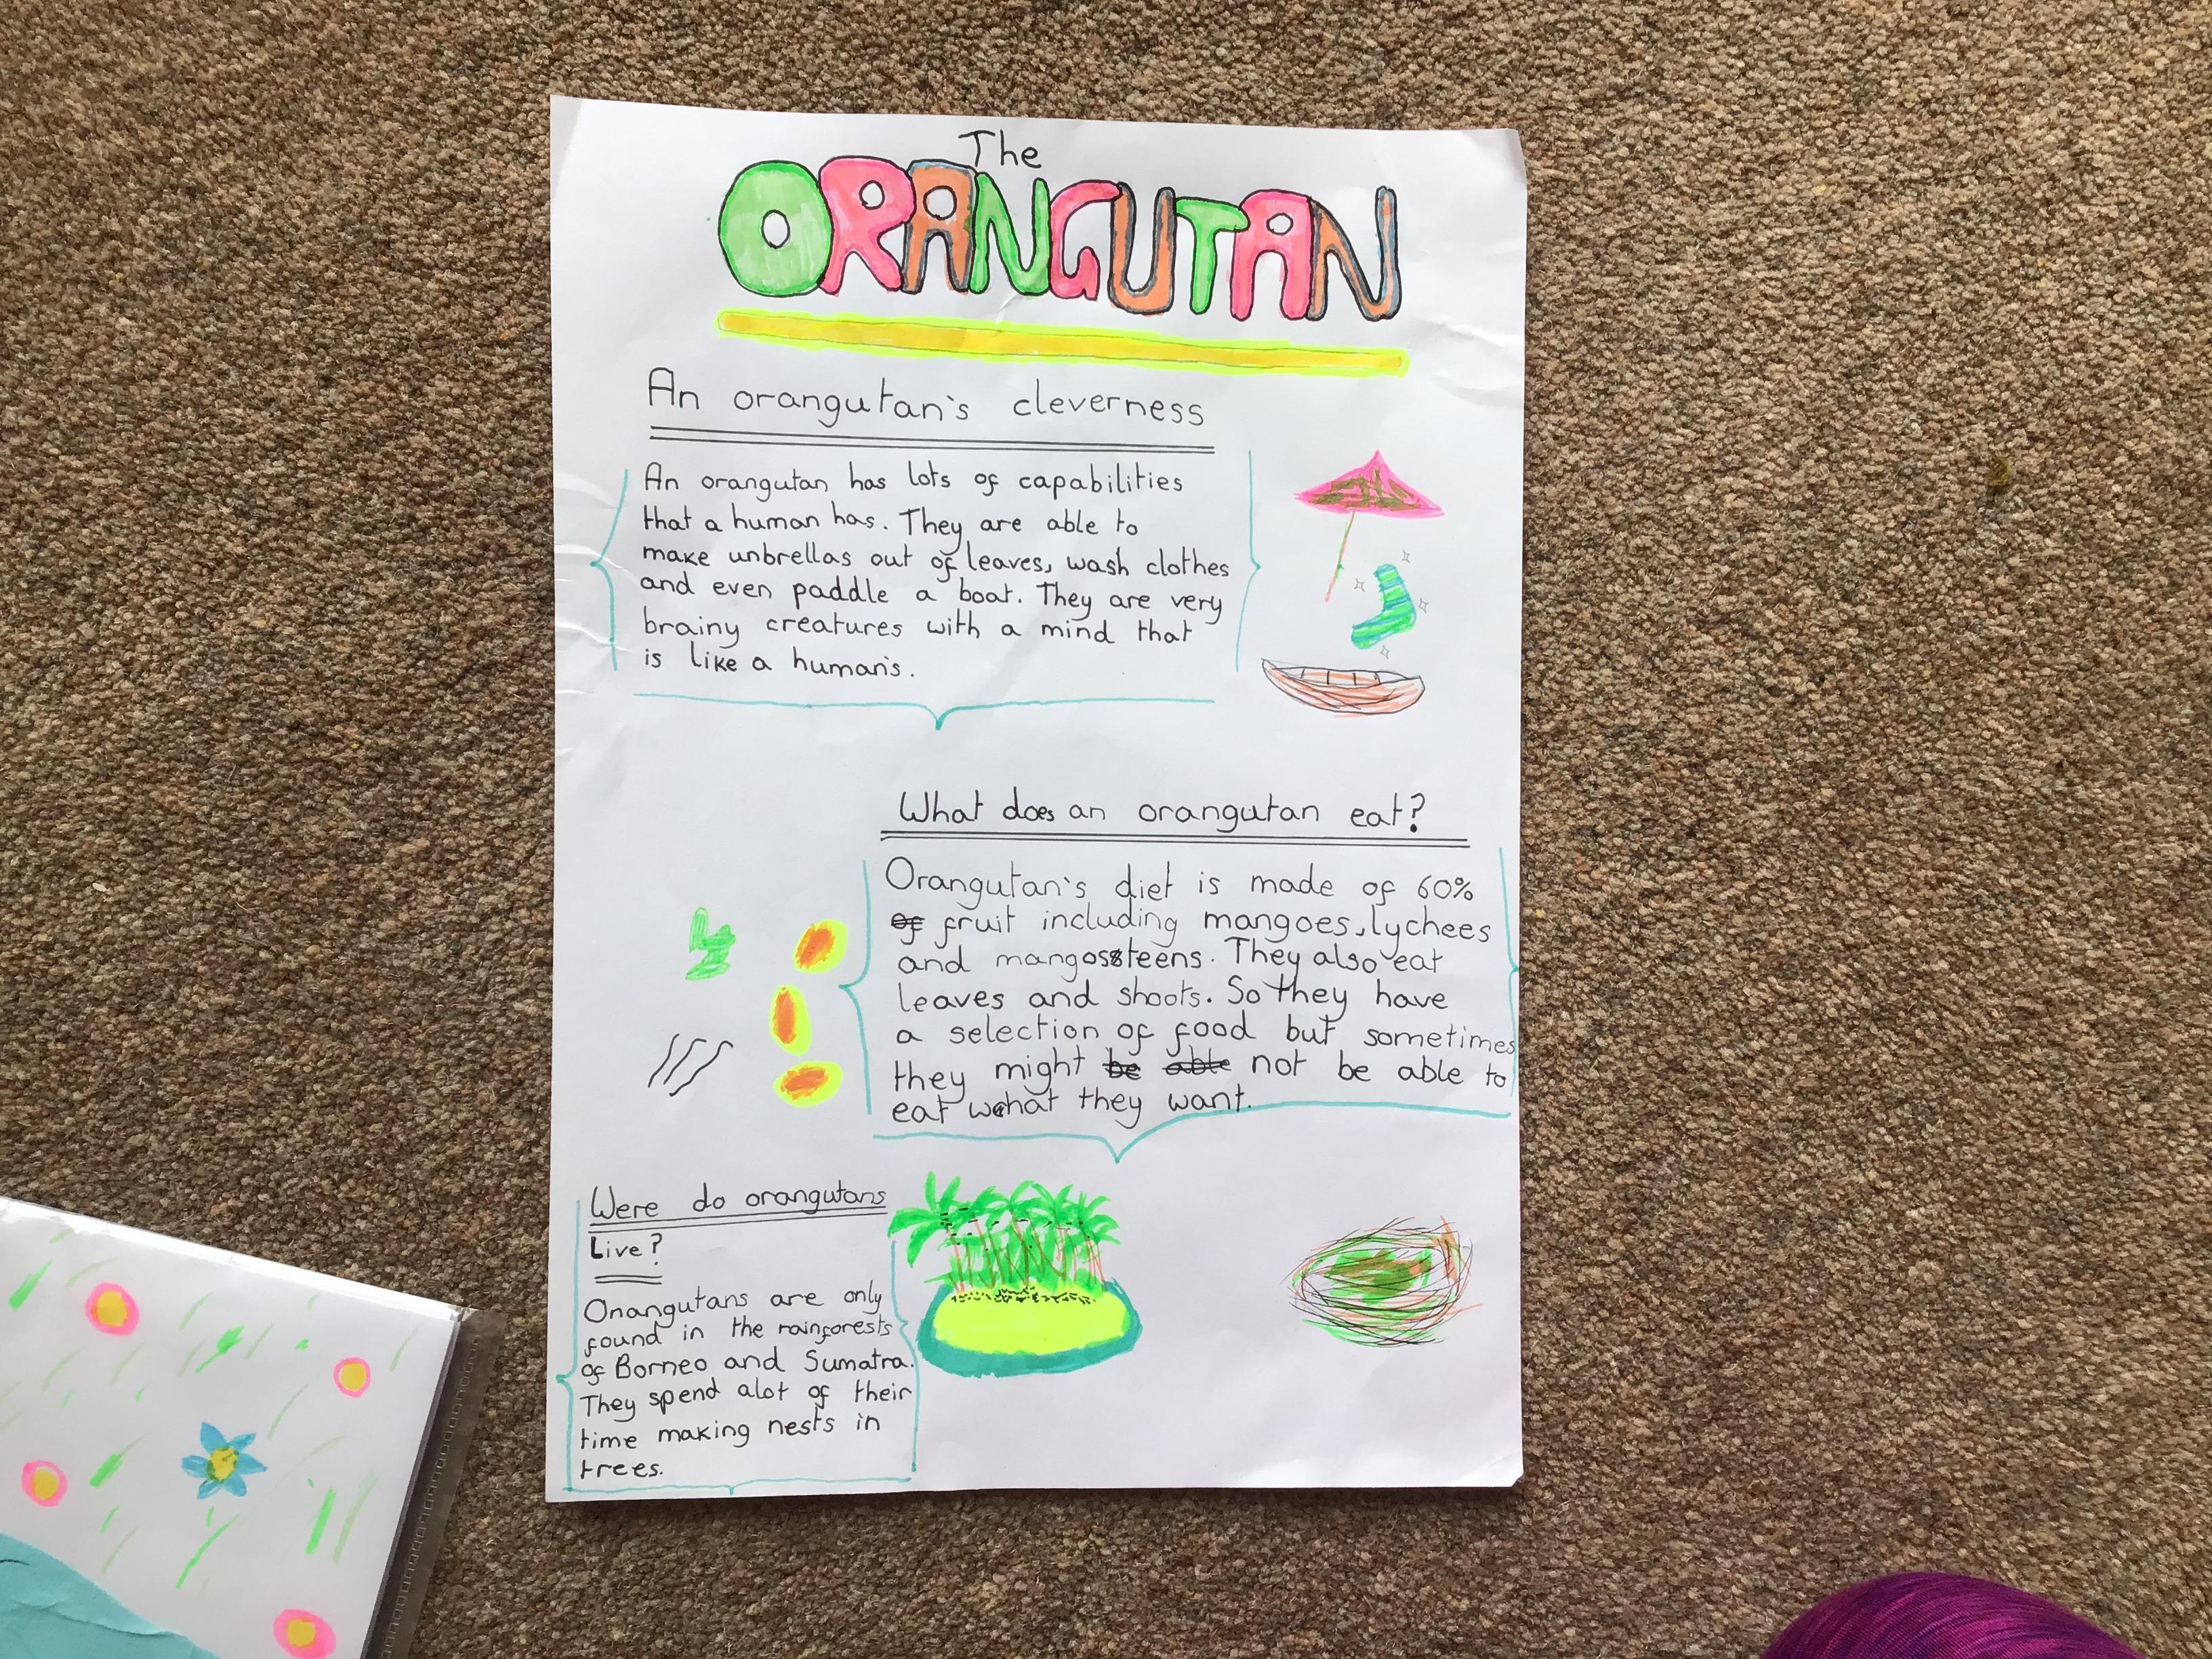 The
ORANGUTAN
An orangutan's cleverness
An orangutan has lots of capabilities
that a human has. They are able to
make unbrellas out of leaves, wash clothes
and even paddle a boat. They are very
brainy creatures with a mind that
is like a human's.
What does an orangutan eat?
Orangutan's diet is made of 60%
of fruit including mangoes, lychees
and mangossteens. They also eat
leaves and shoots. So they have
a selection of food but sometimes
they might be able not be able to
eat what they want.
Were do orangutans
Live?
Onangutans are only
found in the rainforests
of Borneo and Sumatra.
They spend alot of their
time making nests in
trees.